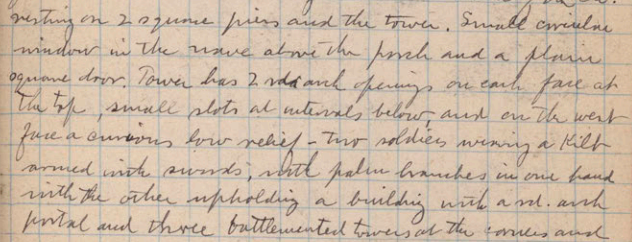 resting on 2 square piers and the tower. Small circular
window in the nave above the porch and a plain
square door. Tower has 2 rd. arch openings on each face at
the top, small slots at intervals below, and on the west
face a curious low relief - two soldiers wearing a Kilt
armed with swords, with palm branches in one hand
with the other upholding a building with a rd. arch
portal and three battlemented towers at the corners and